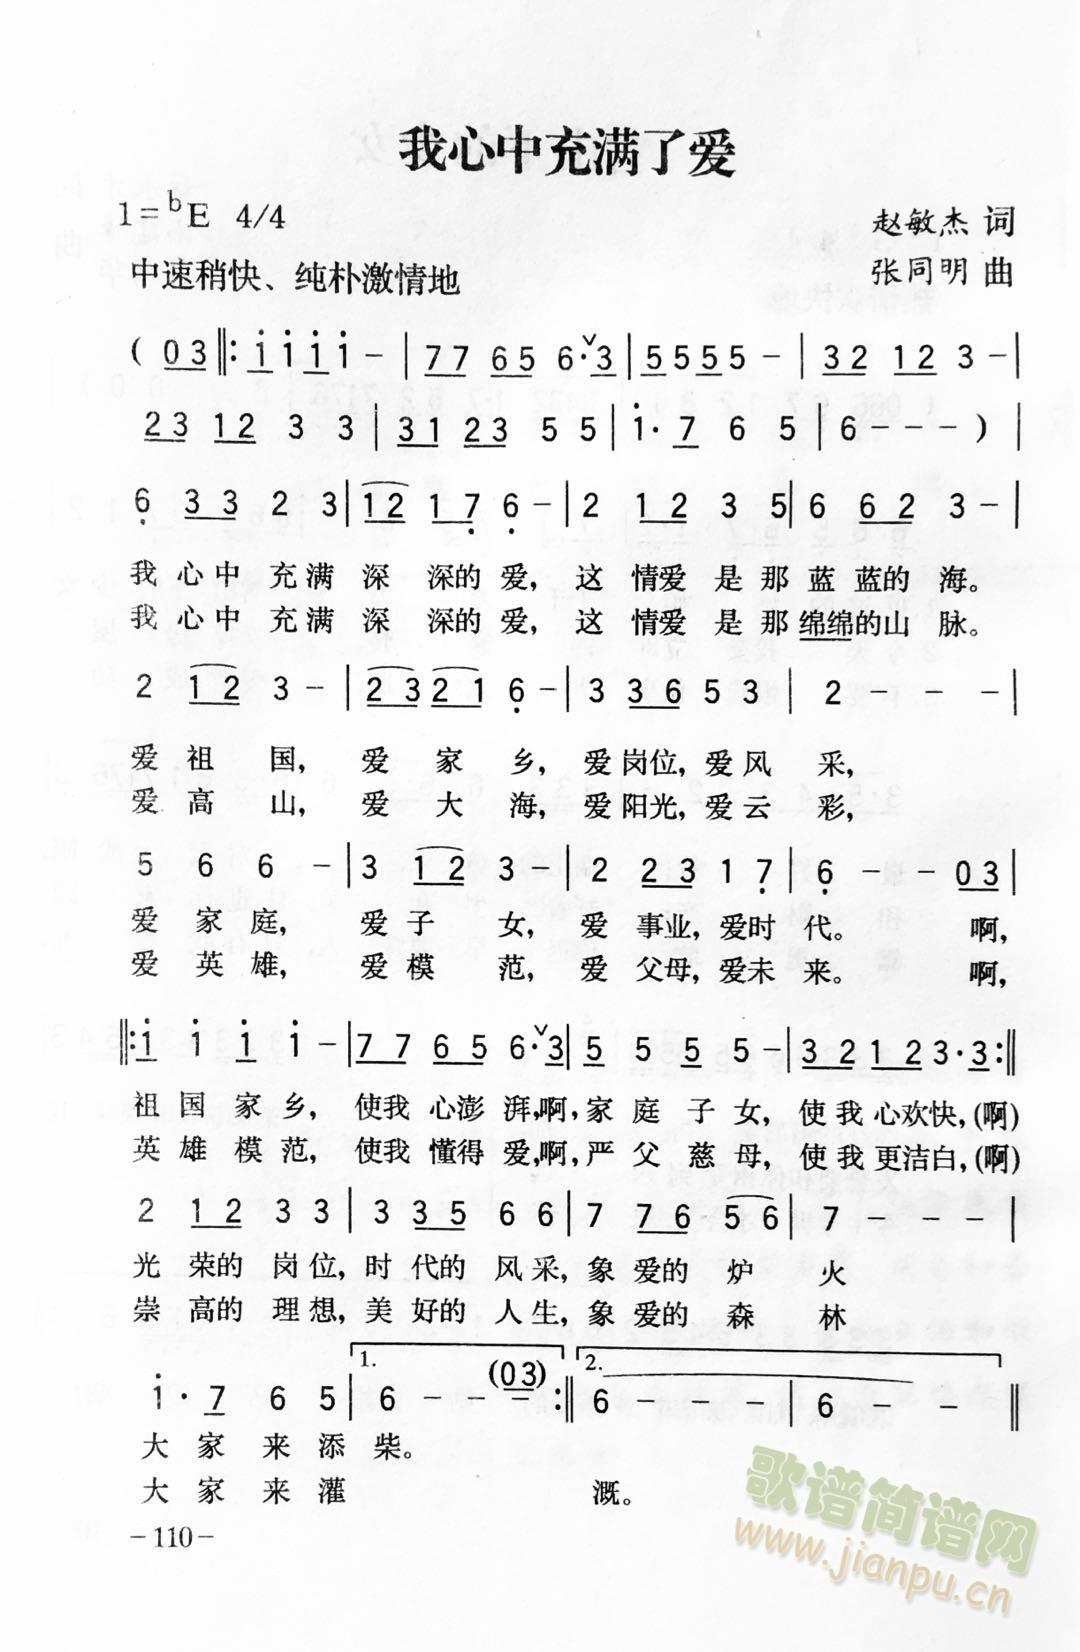 我心中充满了爱
1=♭E 4/4
赵敏杰 词
中速稍快、纯朴激情地
张同明 曲
( 03 ‖: i i i i - | 77 65 6·ˇ3 | 5555 5 - | 32 12 3 - |
23 12 3 3 | 31 23 5 5 | i· 7 6 5 | 6 - - - ) |
6 33 2 3 | 12 17 6 - | 2 12 3 5 | 6 62 3 - |
我 心中 充满 深 深的 爱, 这 情爱 是那 蓝 蓝的 海。
我 心中 充满 深 深的 爱, 这 情爱 是那 绵绵的山 脉。
2 12 3 - | 23 21 6 - | 3 36 5 3 | 2 - - - |
爱 祖 国, 爱 家 乡, 爱 岗位, 爱 风 采,
爱 高 山, 爱 大 海, 爱 阳光, 爱 云 彩,
5 6 6 - | 3 12 3 - | 2 23 1 7 | 6 - - 03 |
爱 家 庭, 爱 子 女, 爱 事业, 爱时 代。 啊,
爱 英 雄, 爱 模 范, 爱 父母, 爱未 来。 啊,
‖: i i i i - | 77 65 6·ˇ3 | 5 5 5 5 - | 32 12 3· 3 :‖
祖 国 家 乡, 使我 心澎 湃,啊, 家 庭 子 女, 使 我 心欢快,(啊)
英 雄 模 范, 使我 懂得 爱,啊, 严 父 慈 母, 使 我 更洁白,(啊)
2 12 3 3 | 3 35 6 6 | 7 76 5 6 | 7 - - - |
光 荣的 岗 位, 时 代的 风 采, 象 爱的 炉 火
崇 高的 理 想, 美 好的 人 生, 象 爱的 森 林
1. (03) 2.
i· 7 6 5 | 6 - - - :‖ 6 - - - | 6 - - - ‖
大 家 来 添 柴。
大 家 来 灌 溉。
-110-
歌谱简谱网
www.jianpu.cn